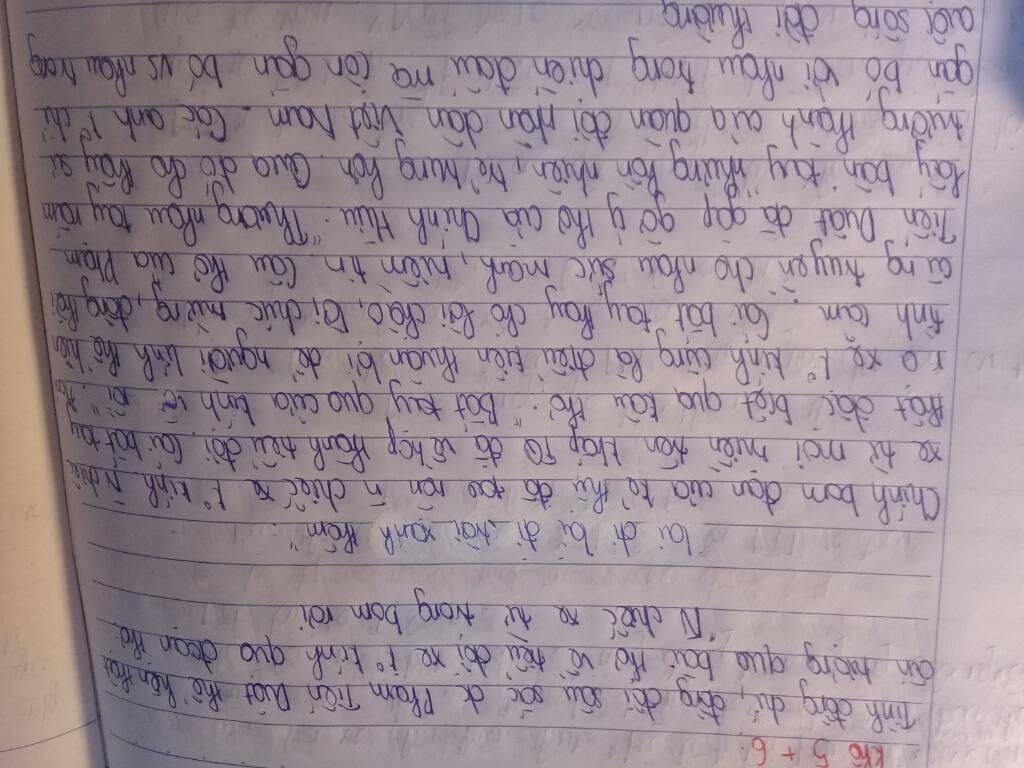 khổ 5 + 6:
Tình đồng chí, đồng đội sâu sắc đc Phạm Tiến Duật thể hiện
ấn tượng qua bài thơ về tiểu đội xe k° kính qua đoạn thơ:
"N chiếc xe từ trong bom rơi
lại đi lại đi trời xanh thêm"
Chính bom đạn của kẻ thù đã tạo nên n chiếc xe k° kính. N chiếc
xe từ mọi miền tổ đã về họp thành tiểu đội. Cái bắt tay
thật đặc biệt qua câu thơ: "Bắt tay qua cửa kính vỡ rồi".
xe k° kính cũng là điều kiện thuận lợi để người lính thể hiện
tình cảm. Cái bắt tay thay cho lời chào, lời chúc mừng, đồng thời
cũng truyền cho nhau sức mạnh, niềm tin. Câu thơ của Phạm
Tiến Duật đã gặp gỡ ý thơ của Chính Hữu "Thương nhau tay nắm
lấy bàn tay" nhưng hồn nhiên, trẻ trung hơn. Qua đó cho thấy sự
trưởng thành của quân đội nhân dân Việt Nam. Các anh k° chỉ
gắn bó với nhau trong chiến đấu mà còn gắn bó vs nhau trong
cuộc sống đời thường